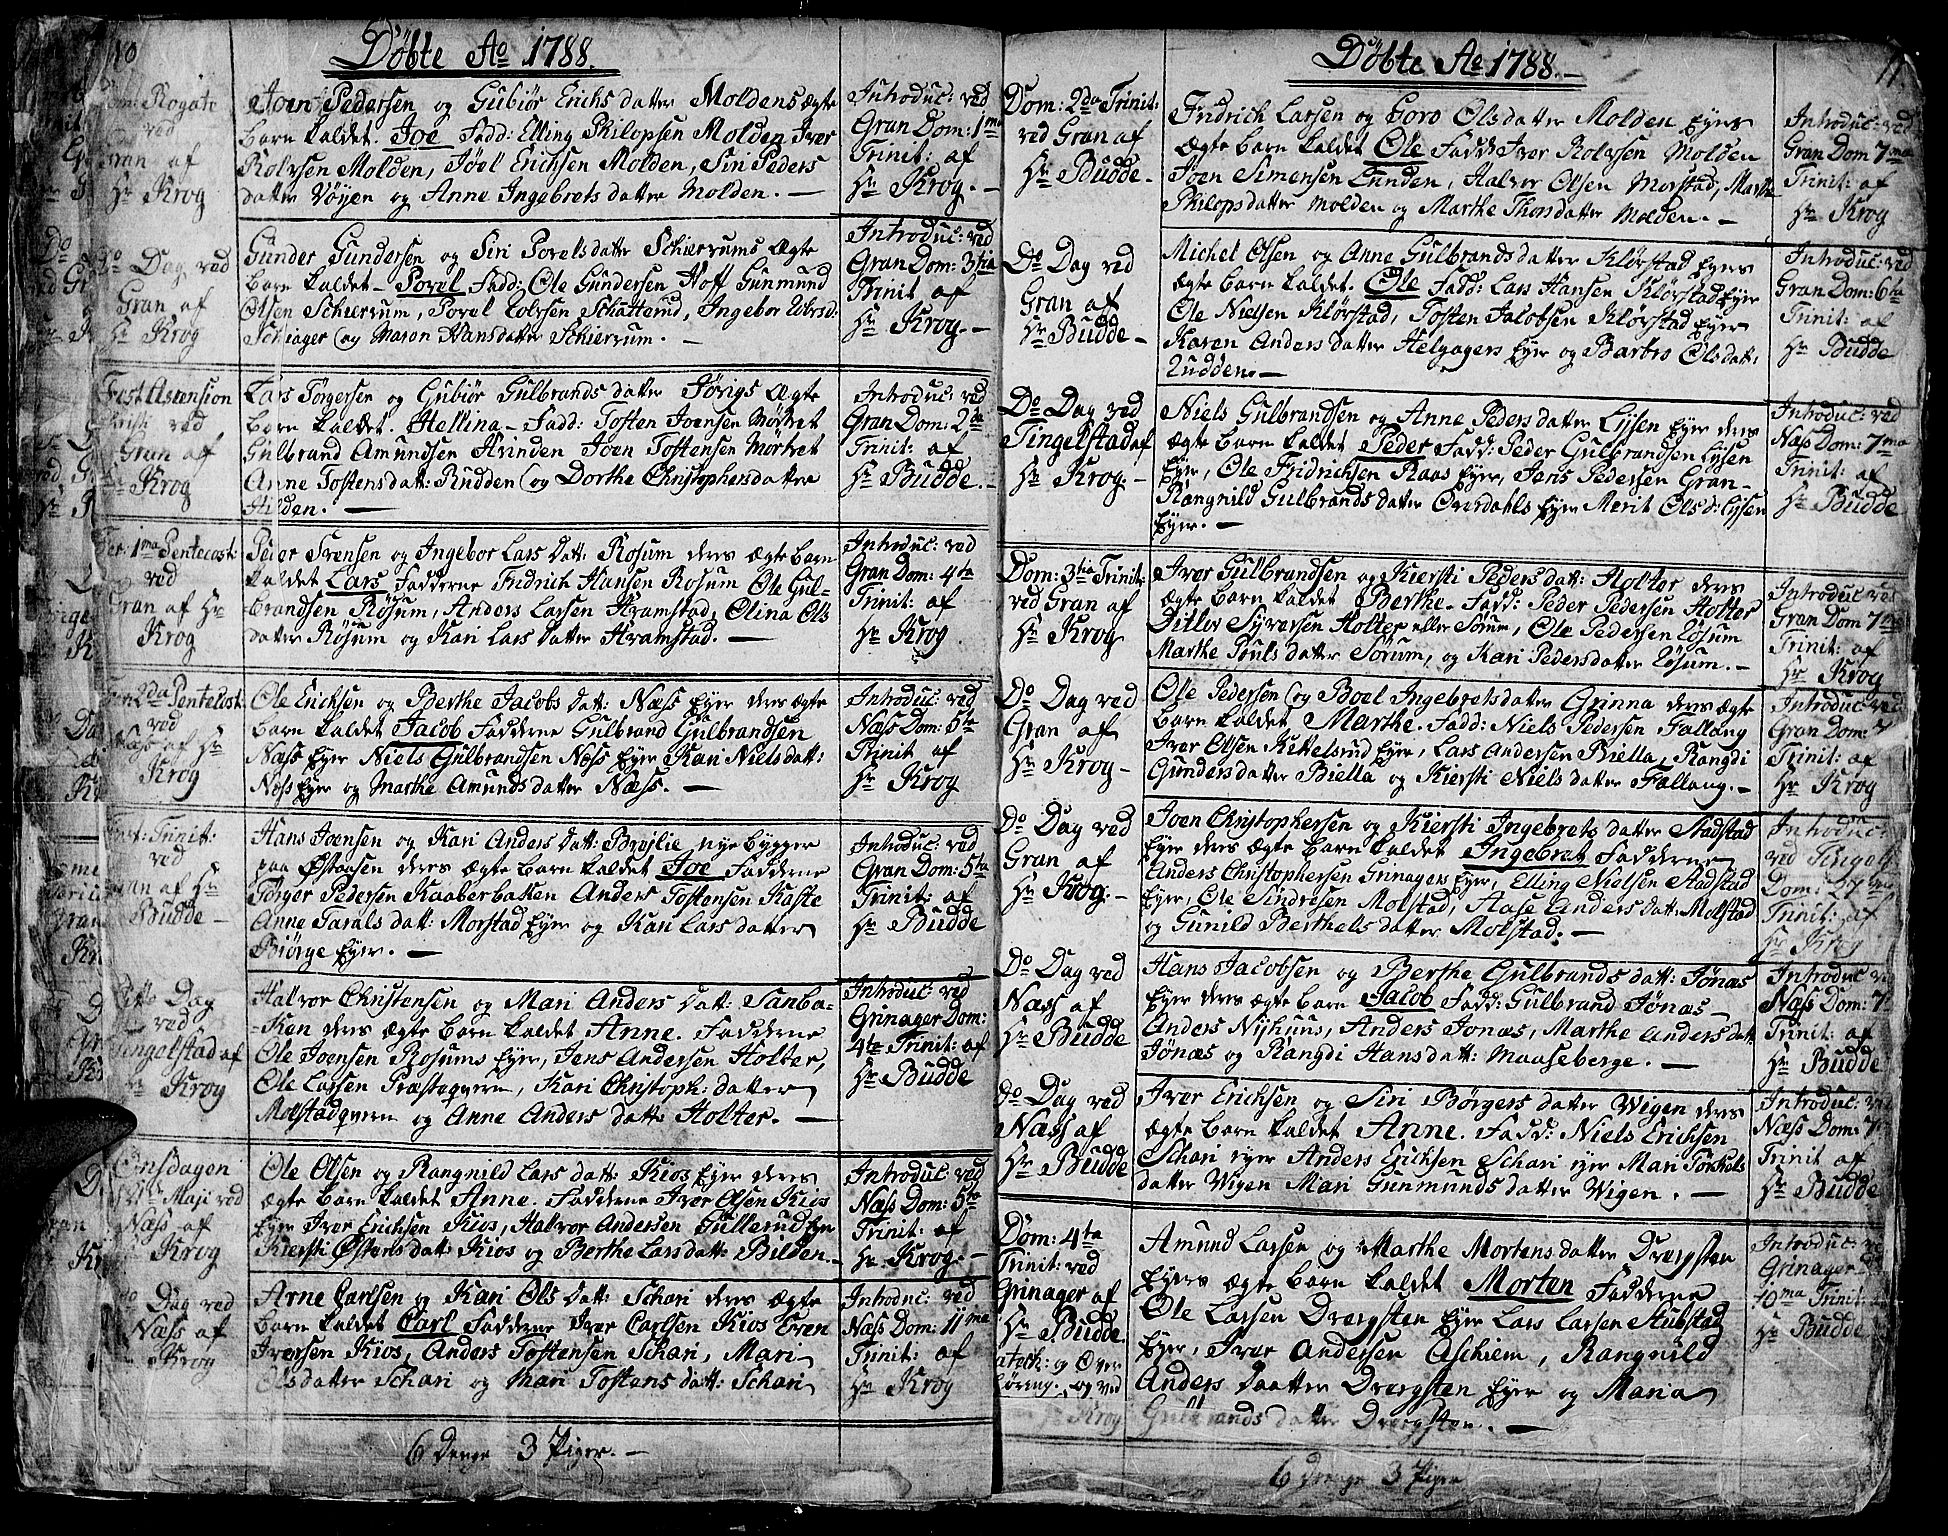 10
Döbte Ao 1788.
Dom: Rogate
ved
Gran af
Hr Krog
Joen Pedersen og Gubiør Erichs datter Moldens ægte
barn kaldet Joe Fadd: Elling Philopsen Molden Iver
Rolvsen Molden, Joel Erichsen Molden, Siri Peders
datter Vøyen og Anne Ingebrets datter Molden. —
Introduc: ved
Gran Dom: 1ma
Trinit: af
Hr Krog. -
Do Dag ved
Gran af
Hr Krog
Gunder Gundersen og Siri Povels datter Schierrums Ægte
barn kaldet Povel Fadd: Ole Gundersen Hoff Gunmund
Olsen Schierrum, Povel Schattemd, Ingebor
Schiager og Maron Hansdatter Schierrum. —
Introduc: ved
Gran Dom: 3tia
Trinit af
Hr Krog. -
Fest Ascension
Christi ved
Gran af
Krog
Lars Torgersen og Gubiør Gulbrands datter Jørigs Ægte
barn kaldet. Hellina - Fadd: Tosten Joensen Mørtvet
Gulbrand Amundsen Hvinden Joen Tostensen Mørtvet
Anne Tostensdatt: Rudden og Dorthe Christophersdatter
Hilden. —
Introduc: ved
Gran Dom: 2da
Trinit: af
Hr Budde. -
Fer: 1ma Pentecost:
ved
Gran af Hr
Krog
Peder Svensen og Ingebor Lars Datt: Rosum deres ægte barn
kaldet Lars Fadderne Fridrich Hansen Rosum Ole Gul-
brandsen Rosum, Anders Larsen Framstad, Olina Ols
datter Rosum og Kari Lars datter Framstad. —
Introduc: ved
Gran Dom: 4ta
Trinit: af
Hr Krog.
Fer: 2da Pentecost
ved
Næss af Hr
Krog
Ole Erichsen og Berthe Jacobs Datt: Næss Eyer deres ægte
barn kaldet Jacob Fadderne Gulbrand Gulbrandsen
Næss Eyer Niels Gulbrandsen Næss Eyer Kari Niels datt:
Næss Eyer og Marthe Amunds datter Næss. —
Introduc: ved
Næss Dom: 5ta
Trinit af
Hr Krog
Fest: Trinit:
ved
Gran af Hr
Budde -
Hans Joensen og Kari Anders Datt: Brøjlie nye bygger
paa Østensen deres ægte barn kaldet Joe Fadderne
Torger Pedersen Kaaberbakken Anders Tostensen Kaste
Anne Taralsdatt: Morstad Eyer og Kari Lars datter
Biørge Eyer. —
Introduc: ved
Gran Dom: 5ta
Trinit: af
Hr Budde
Ditto Dag
ved
Tingelstad af
Hr Krog
Halvor Christensen og Mari Anders Datt: Sanba-
-ken deres ægte barn kaldet Anne. Fadderne
Ole Joensen Rosums Eyer, Jens Andersen Holter,
Ole Larsen Præsteqvern, Kari Christoph: datter
Molstadqvern og Anne Anders datt: Holter. —
Introduc: ved
Grinager Dom:
4ta Trinit: af
Hr Budde
Onsdagen
Maji ved
Næss af
Krog
Ole Olsen og Rangnild Lars datt: Kios Eyer deres
ægte barn kaldet Anne. Fadderne Iver Olsen Kios
Eyer Iver Erichsen Kios, Halvor Andersen Gullerud Eyer
Kiersti Østens datt: Kios og Berthe Larsdatt: Bilden. -
Introduc: ved
Næss Dom: 5ta
Trinit: af
Hr Krog. -
Do Dag ved
Næss af
Krog
Arne Carlsen og Kari Ols Datt: Schari deres ægte
barn kaldet Carl Fadderne Iver Carlsen Kios Even
Iversen Kios, Anders Tostensen Schari, Mari
Olsdatter Schari og Mari Tostens datt: Schari
Introduc: ved
Næss Dom: 11ma
Trinit: af
Hr Krog
6 Drenge 3 Piger. —
11
Döbte Ao 1788. -
Dom: 2da Trinit:
ved Gran af
Hr Budde. -
Fridrich Larsen og Goro Olsdatter Molden Eyers
ægte barn kaldet Ole Fadd: Iver Rolvsen Molden
Joen Simensen Lunden, Halvor Olsen Morstad, Marthe
Philopsdatter Molden og Marthe Thorsdatter Molden. —
Introduc: ved
Gran Dom 7ma
Trinit: af
Hr Krog
Do Dag ved
Gran af
Hr Budde -
Michel Olsen og Anne Gulbrands datter Klørstad Eyers
ægte barn kaldet. Ole Fadd: Lars Hansen Klørstad Eyer
Ole Nielsen Klørstad, Tosten Jacobsen Klørstad Eyer
Karen Anders datter Helgagers Eyer og Barbro Olsdatt:
Rudden. —
Introduc: ved
Gran Dom: 6ta
Trinit: af
Hr Budde
Do Dag ved
Tingelstad af
Hr Krog. -
Niels Gulbrandsen og Anne Peders datter Lysen Eyer deres
ægte barn kaldet Peder Fadd: Peder Gulbrandsen Lysen
Eyer, Ole Fridrichsen Raas Eyer, Jens Pedersen Gran -
Rangnild Gulbrands datter Overdahls Eyer Merit Olsd: Lysen
Eyer. —
Introduc: ved
Næss Dom: 7ma
Trinit: af
Hr Budde
Dom: 3tia Trinit:
ved Gran af
Hr Krog
Iver Gulbrandsen og Kiersti Peders datt: Holter deres
ægte barn kaldet Berthe. Fadd: Peder Pedersen Holter
Ditlev Syversen Holter eller Sørum, Ole Pedersen Løsum
Marthe Pouls datter Sørum, og Kari Pedersdatter Løsum. —
Introduc ved
Gran Dom 7ma
Trinit: af
Hr Krog
Do Dag ved
Gran af
Hr Krog -
Ole Pedersen og Boel Ingebretsdatter Grinna deres ægte
barn kaldet Marthe. Fadd: Niels Pedersen Fallang
Iver Olsen Kittelsrud Eyer, Lars Andersen Biella, Rangdi
Gundersdatter Biella og Kiersti Niels datter Fallang. -
Introduc: ved
Gran Dom: 7
Trinit: af
Hr Krog
Do Dag ved
Gran af
Hr Krog. -
Joen Christophersen og Kiersti Ingebrets datter Aadstad
Eyer deres ægte barn kaldet Ingebret Fadderne
Anders Christophersen Grinagers Eyer, Elling Nielsen Aadstad
Eyer, Ole Sindresen Molstad, Aase Anders datt: Molstad
og Gunild Berthels datter Molstad. —
Introduc:
ved Tingels
Dom: 7ma
Trinit: af
Hr Krog
Do Dag ved
Næss af
Hr Budde
Hans Jacobsen og Berthe Gulbrands datt: Jønæs
Eyer deres ægte barn Jacob Fadd: Gulbrand Jønæs -
Anders Nyhuus, Anders Jonæs, Marthe Anders datt
Jønæs og Rangdi Hans datt: Maaseberge. —
Introduc ved
Næss Dom: 7
Trinit: af
Hr Budde
Do Dag ved
Næss af
Hr Budde
Iver Erichsen og Siri Børgers datter Wigen deres
ægte barn kaldet Anne. Fadd: Niels Erichsen
Schari Eyer Anders Erichsen Schari Eyer Mari Torkels
datter Wigen Mari Gunmunds datter Wigen. —
Introduc: ved
Næss Dom: 7
Trinit af
Hr Budde
Dom: 4ta
Trinit: ved
Grinager af
Hr Budde.
Catech: og Over
høring, og ved
Krog
Amund Larsen og Marthe Mortens datter Drægsten
Eyers ægte barn kaldet Morten Fadderne
Ole Larsen Drægsten Eyer Lars Larsen Stubstad
Eyer, Iver Andersen Aschiem, Rangnild
Anders Daatter Drægsten Eyer og Maria
Gulbrands datter Drægsten. —
Introduc: ved
Grinager
10ma Trinit:
Hr Budde
6 Drenge 3 Piger